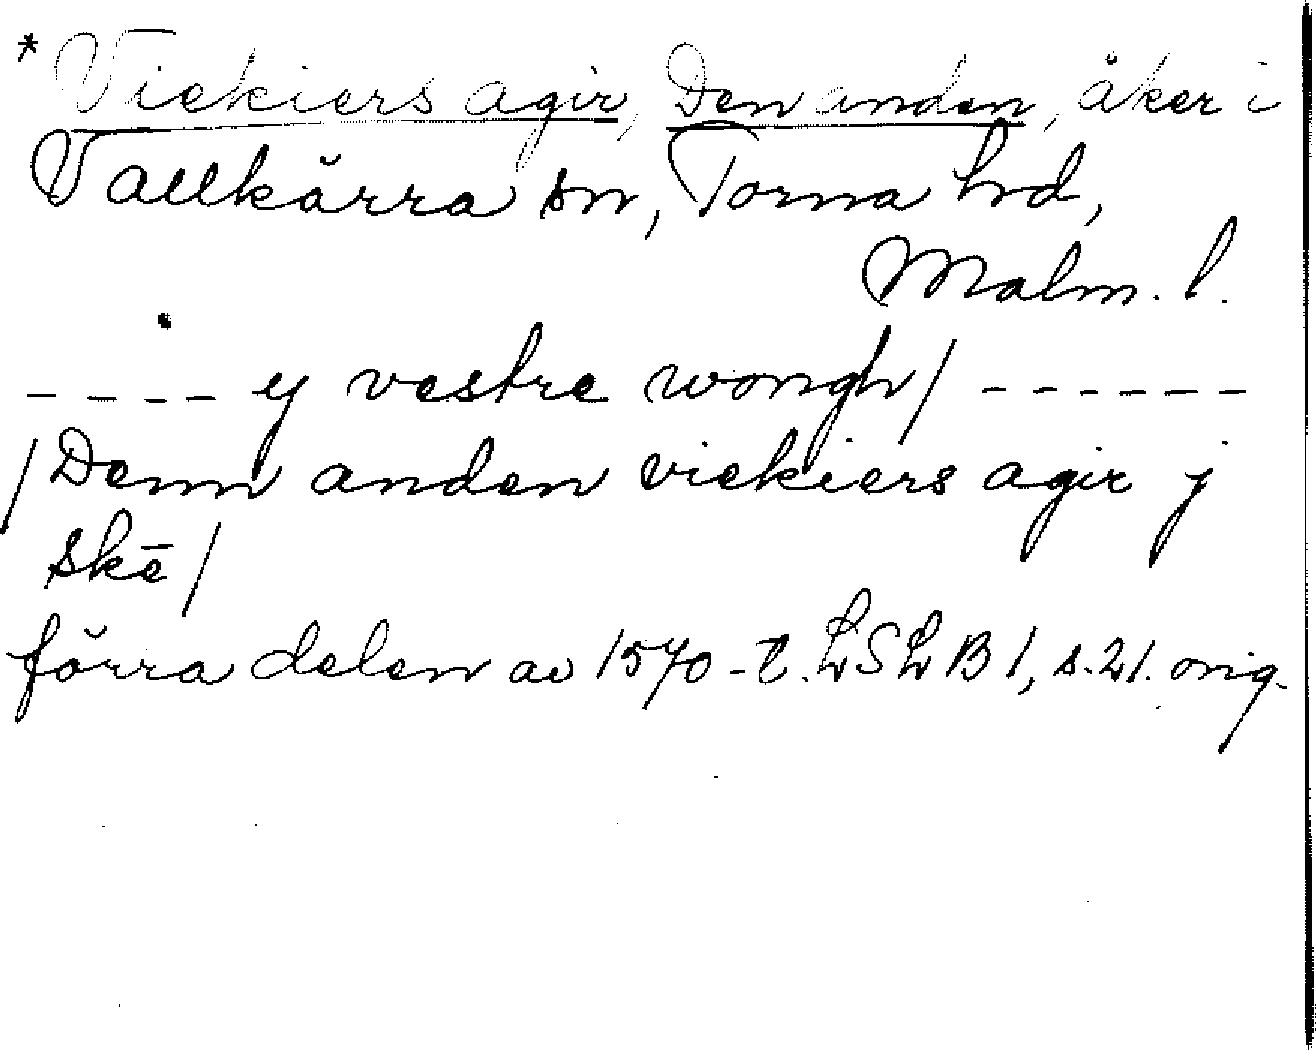 * Viekiers agir, Den anden, åker i
Vallkärra sn, Torna hrd,
Malm. l.
---- y vestre wongh/ ------
/Denn anden viekiers agir j
skē/
förra delen av 1570-t. LSLB 1, s. 21. orig.